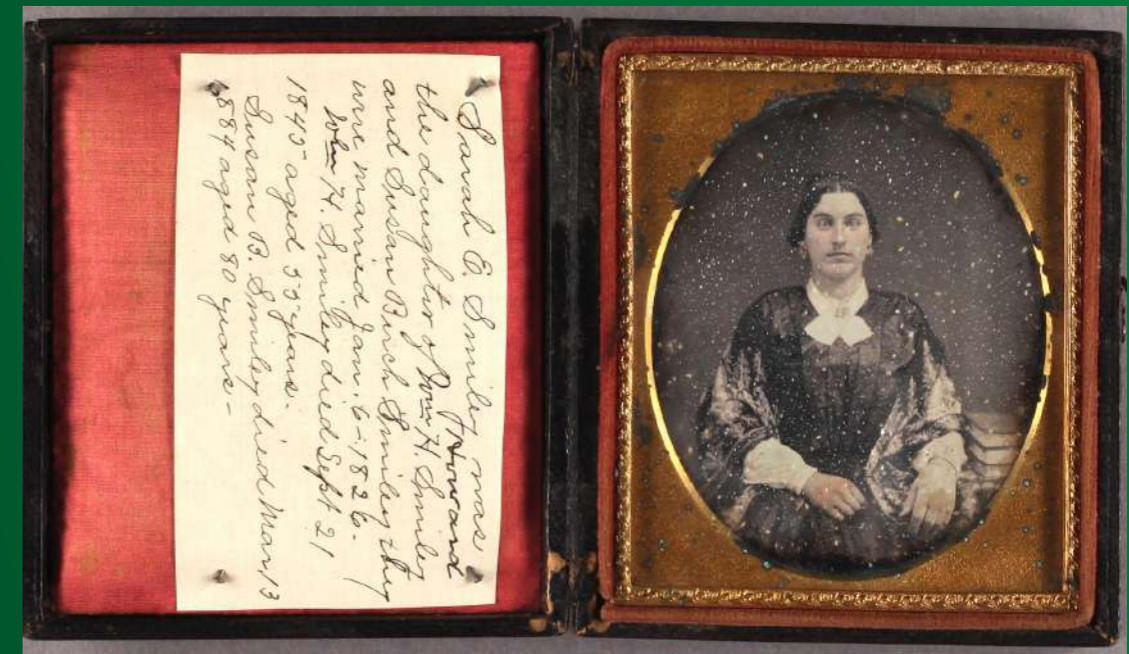 Sarah E. Smiley was
Howard
the daughter of Wm H. Smiley
and Susan Birch Smiley they
were married Jan. 6-1826-
Wm H. Smiley died Sept 21
1845 aged 55 years.
Susan B. Smiley died Mar 13
1884 aged 80 years-